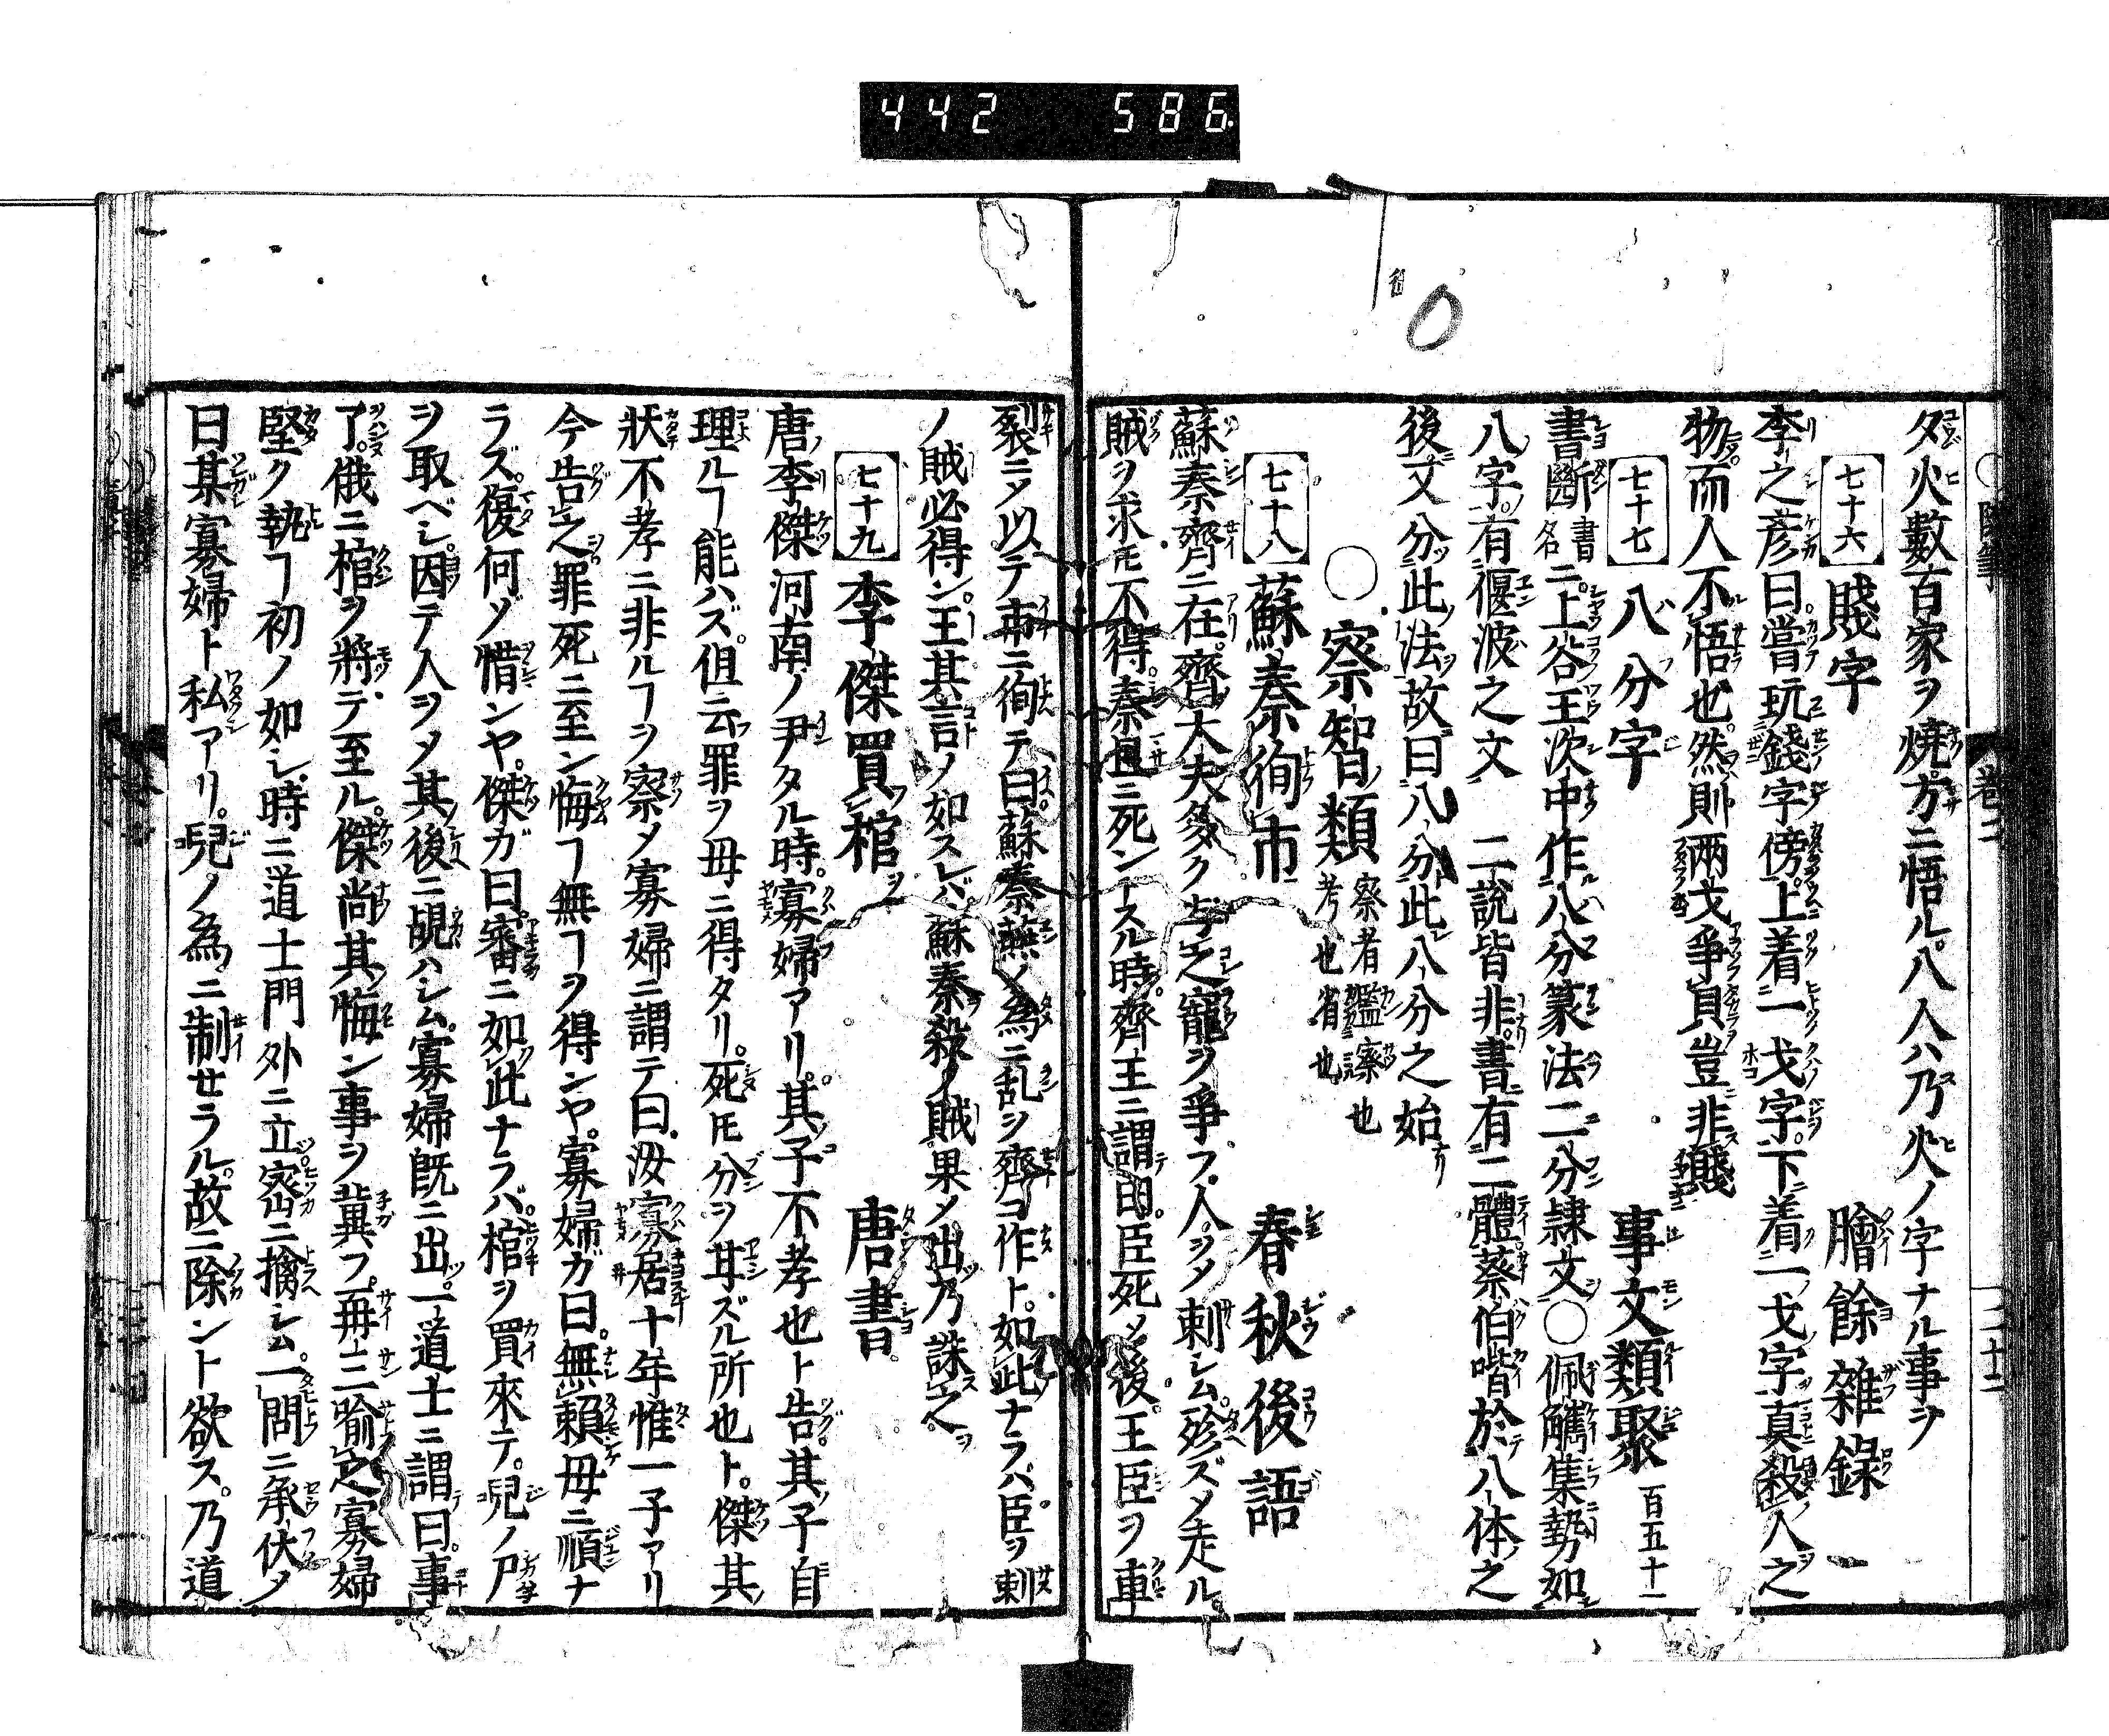 442 586.
夕火數百家ヲ燒方ニ悟ル八人ハ乃火ノ字ナル事ヲ
七十六 賤字 膾餘雜錄 一
李之彥曰嘗玩錢字傍上着一戈字下着一戈字真殺人之
物而人不悟也然則兩戈爭貝豈非賤
七十七 八分字 事文類聚 百五十一
書斷書名ニ上谷王次中作八分篆法二分隷文○佩觽集勢如
八字有偃波之文 二說皆非書有二體蔡伯喈於八体之
後又分此法故曰八分此八分之始
○察智類 察者鑑察也考也省也
七十八 蘇秦徇市 春秋後語
蘇秦齊ニ在齊大夫多ク与之寵ヲ爭フ人ヲ〆刺シム殄ズ〆走ル
賊ヲ求𪜈不得秦且ニ死ントスル時齊王ニ謂曰臣死〆後王臣ヲ車
裂ニ〆以テ市ニ徇テ曰蘇秦燕ノ為ニ乱ヲ齊ヨ作ト如此ナラバ臣ヲ刺
ノ賊必得ン王其言ノ如スレバ蘇秦殺ノ賊果〆出乃誅之
七十九 李傑買棺 唐書
唐李傑河南ノ尹タル時寡婦アリ其子不孝也ト告其子自
理ルヿ能ハズ但云罪ヲ毋ニ得タリ死𪜈分ヲ甘ズル所也ト傑其
狀不孝ニ非ルヿヲ察〆寡婦ニ謂テ曰汝寡居十年惟一子アリ
今告之罪死ニ至ン悔ヿ無ヿヲ得ンヤ寡婦ガ曰無賴毋ニ順ナ
ラズ復何ゾ惜ンヤ傑ガ曰審ニ如此ナラバ棺ヲ買來テ兒ノ尸
ヲ取ベシ因テ人ヲ〆其後ニ覘ハシム寡婦既ニ出一道士ニ謂テ曰事
了俄ニ棺ヲ將テ至ル傑尚其悔ン事ヲ冀フ再三喻之寡婦
堅ク執ヿ初ノ如シ時ニ道士門外ニ立密ニ擒シム一問ニ承伏〆
曰某寡婦ト私アリ兒ノ為ニ制セラル故ニ除ント欲ス乃道